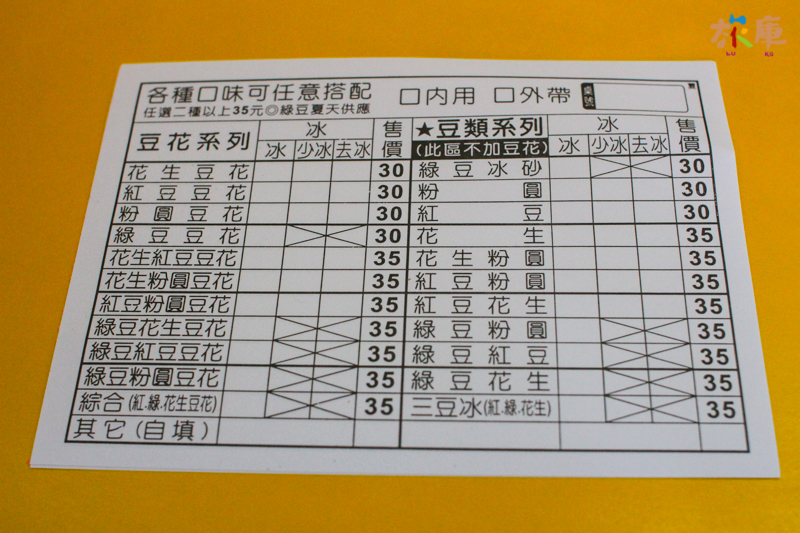 旅庫
LU KU
各種口味可任意搭配 □內用 □外帶 桌號
任選二種以上35元◎綠豆夏天供應
豆花系列 冰 售價 ★豆類系列 冰 售價
冰 少冰 去冰 (此區不加豆花) 冰 少冰 去冰
花生豆花 30 綠豆冰砂 30
紅豆豆花 30 粉圓 30
粉圓豆花 30 紅豆 30
綠豆豆花 30 花生 35
花生紅豆豆花 35 花生粉圓 35
花生粉圓豆花 35 紅豆粉圓 35
紅豆粉圓豆花 35 紅豆花生 35
綠豆花生豆花 35 綠豆粉圓 35
綠豆紅豆豆花 35 綠豆紅豆 35
綠豆粉圓豆花 35 綠豆花生 35
綜合(紅.綠.花生豆花) 35 三豆冰(紅.綠.花生) 35
其它(自填)